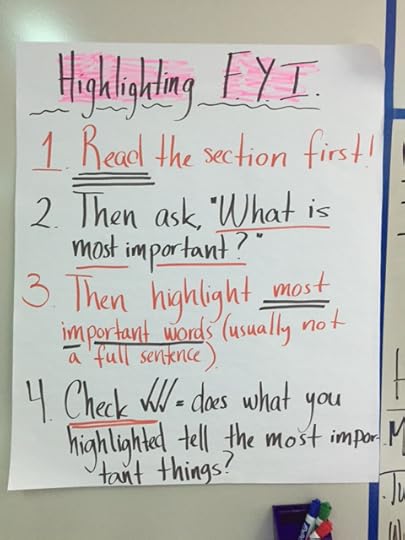 Highlighting F.Y.I.
1. Read the section first!
2. Then ask, "What is
most important?"
3. Then highlight most
important words (usually not
a full sentence).
4. Check ✓✓✓ = does what you
highlighted tell the most impor-
tant things?